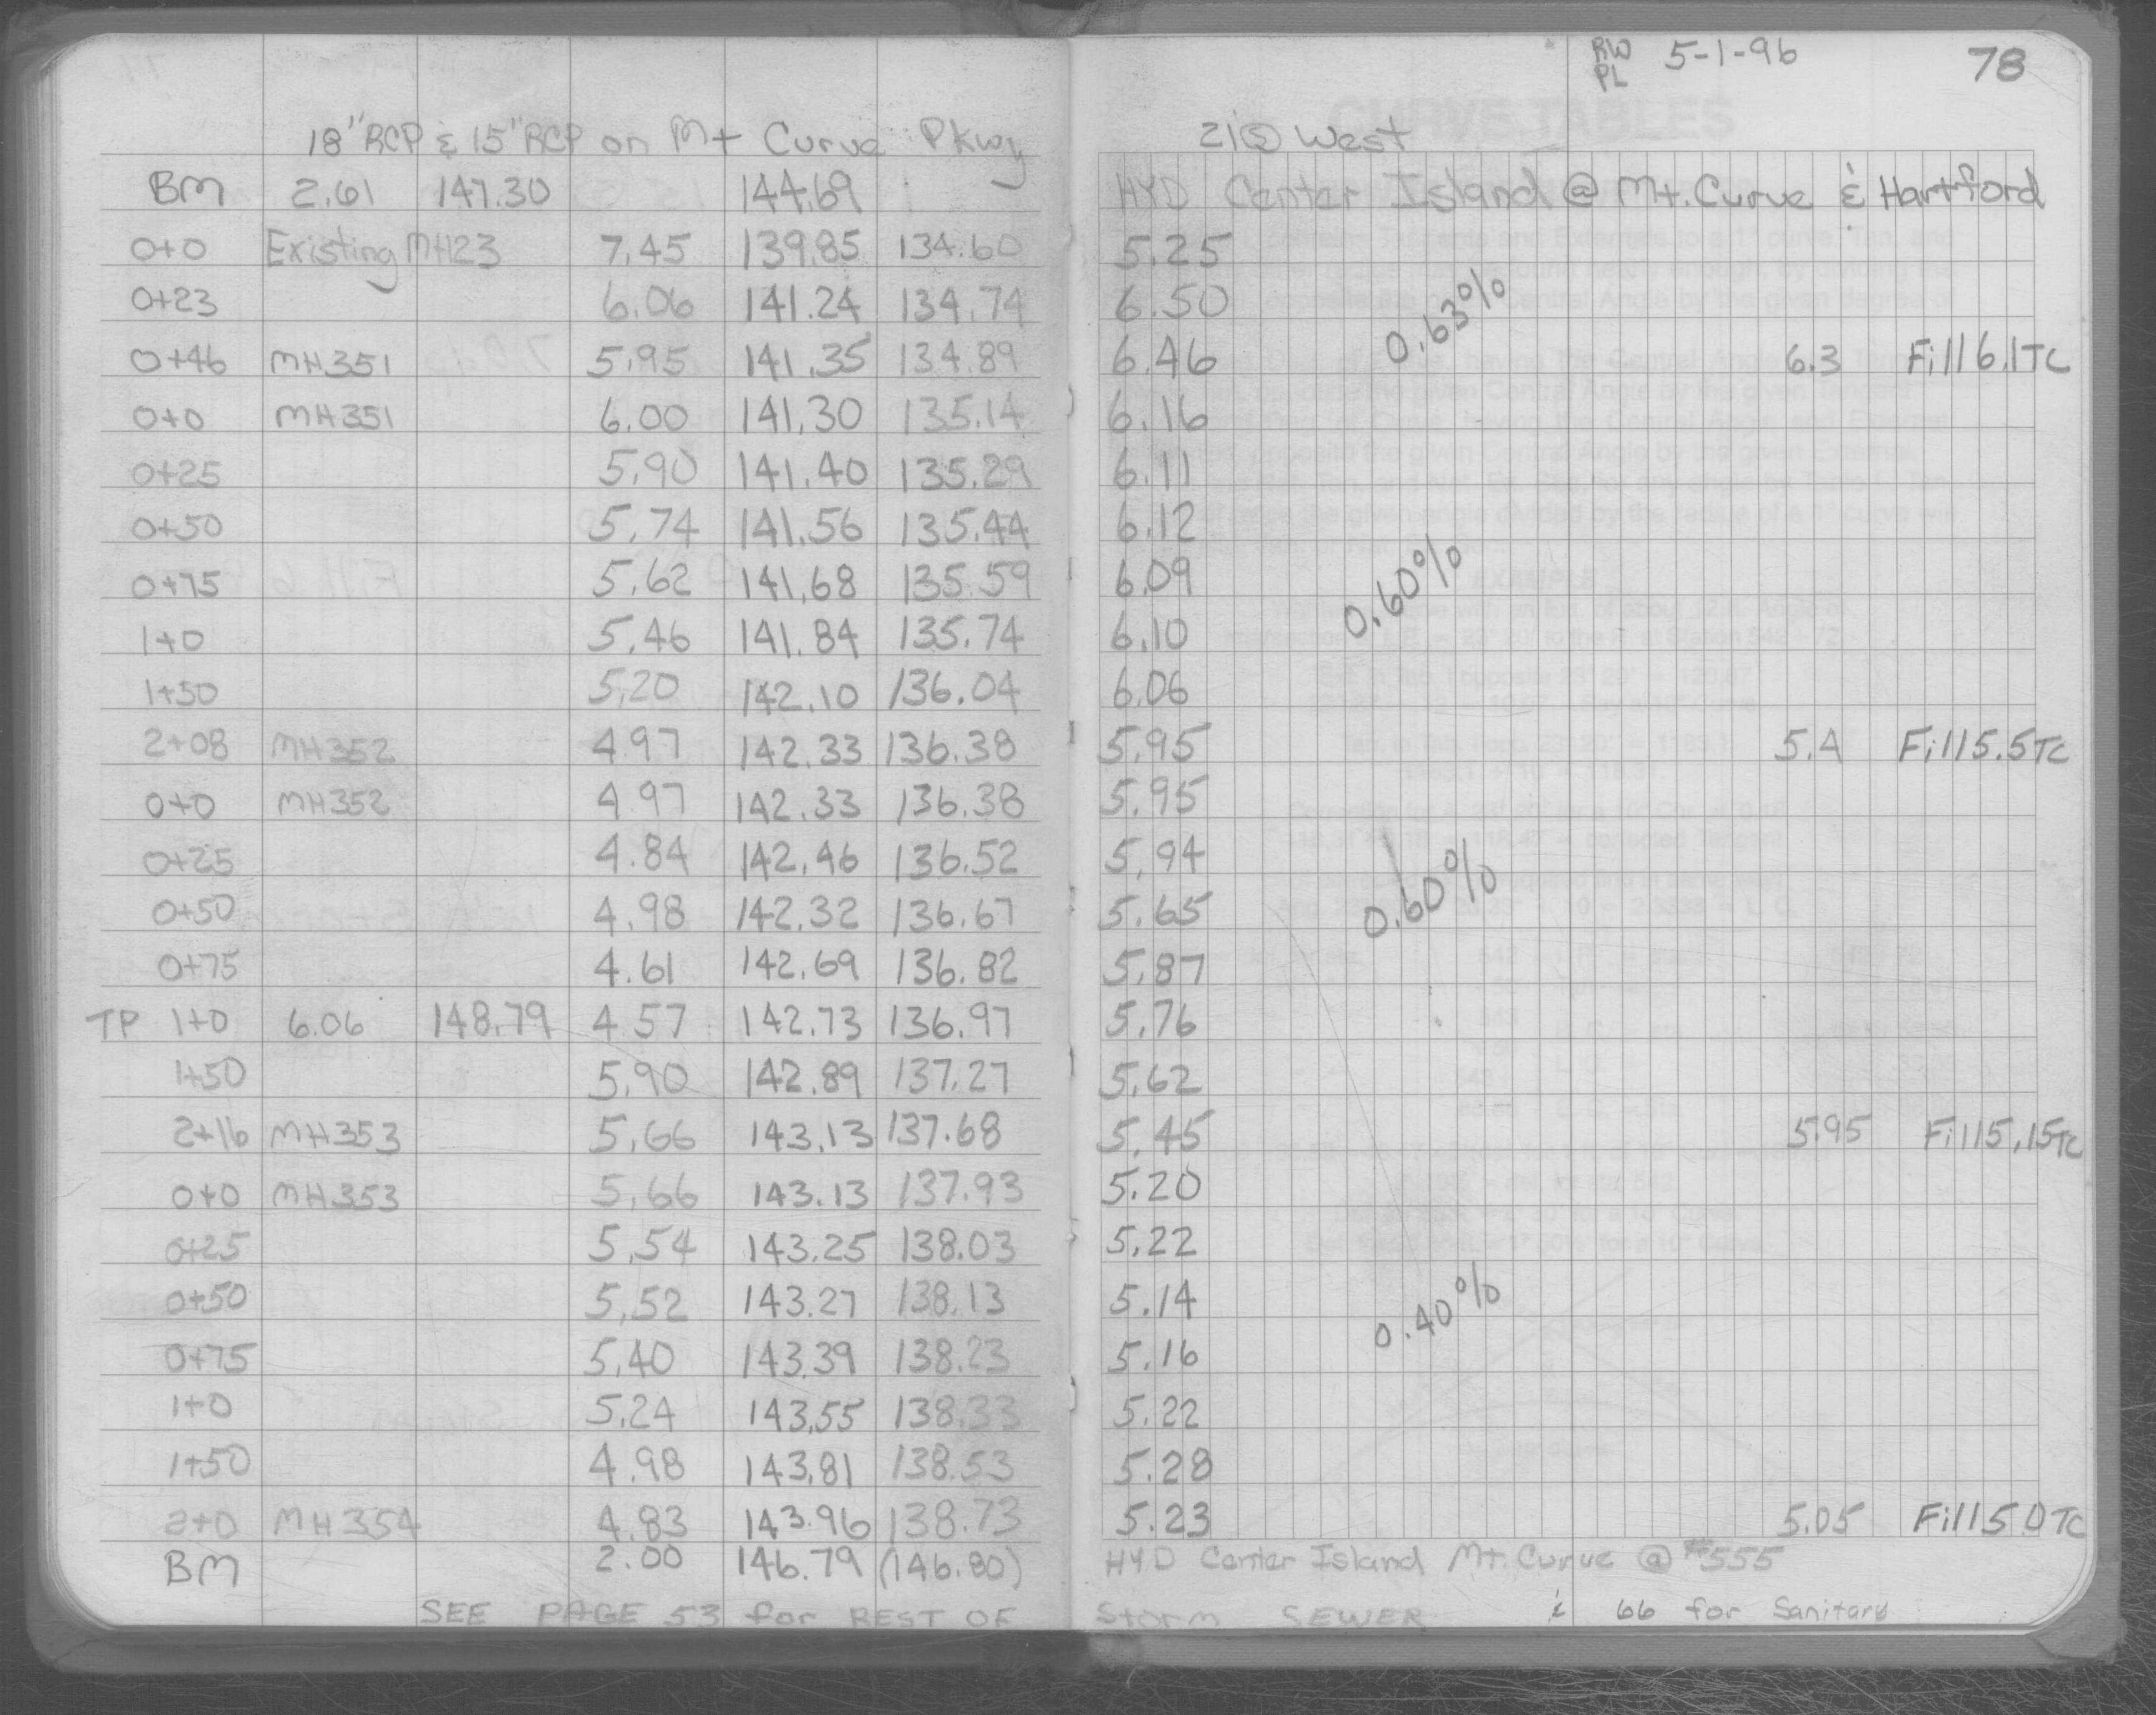 RW 5-1-96 78
PL
18" RCP & 15" RCP on Mt Curve Pkwy West
BM 2.61 147.30 144.69 HYD Center Island @ Mt. Curve & Hartford
0+0 Existing MH23 7.45 139.85 134.60 5.25
0+23 6.06 141.24 134.74 6.50 0.63%
0+46 MH351 5.95 141.35 134.89 6.46 6.3 Fill 6.1 TC
0+0 MH351 6.00 141.30 135.14 6.16
0+25 5.90 141.40 135.29 6.11
0+50 5.74 141.56 135.44 6.12
0+75 5.62 141.68 135.59 6.09 0.60%
1+0 5.46 141.84 135.74 6.10
1+50 5.20 142.10 136.04 6.06
2+08 MH352 4.97 142.33 136.38 5.95 5.4 Fill 5.5 TC
0+0 MH352 4.97 142.33 136.38 5.95
0+25 4.84 142.46 136.52 5.94
0+50 4.98 142.32 136.67 5.65 0.60%
0+75 4.61 142.69 136.82 5.87
TP 1+0 6.06 148.79 4.57 142.73 136.97 5.76
1+50 5.90 142.89 137.27 5.62
2+16 MH353 5.66 143.13 137.68 5.45 5.95 Fill 5.15 TC
0+0 MH353 5.66 143.13 137.93 5.20
0+25 5.54 143.25 138.03 5.22
0+50 5.52 143.27 138.13 5.14 0.40%
0+75 5.40 143.39 138.23 5.16
1+0 5.24 143.55 138.33 5.22
1+50 4.98 143.81 138.53 5.28
2+0 MH354 4.83 143.96 138.73 5.23 5.05 Fill 5.0 TC
BM 2.00 146.79 (146.80) HYD Center Island Mt. Curve @ #555
SEE PAGE 53 for REST OF Storm SEWER & 66 for Sanitary